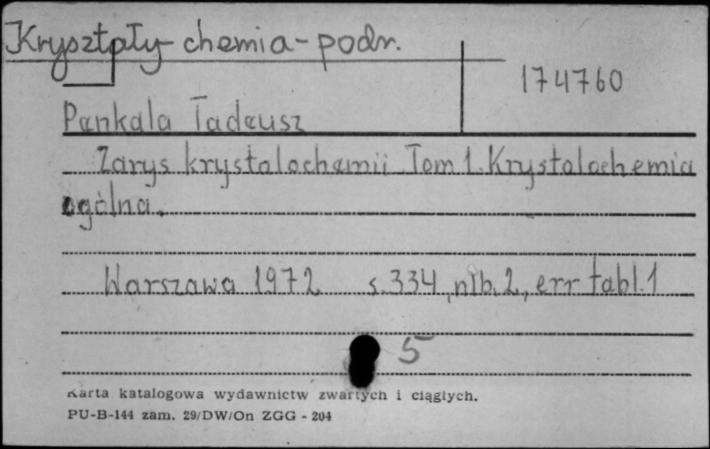 Kryształy-chemia-podr.
174760
Penkala Tadeusz
Zarys krystalochemii Tom 1. Krystalochemia
ogólna.
Warszawa 1972 s. 334, nlb. 2, err tabl. 1
5
Karta katalogowa wydawnictw zwartych i ciągłych.
PU-B-144 zam. 29/DW/On ZGG - 204